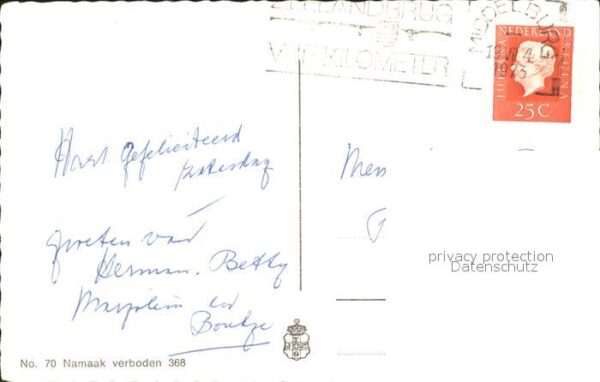 ZEELANDBRUG
VIJF KILOMETER
MIDDELBURG
1973
NEDERLAND
JULIANA REGINA
25C
Hart Gefeliciteerd
zaterdag
groeten van
Herman, Betty
Marjolein en
Boukje
privacy protection
Datenschutz
No. 70 Namaak verboden 368